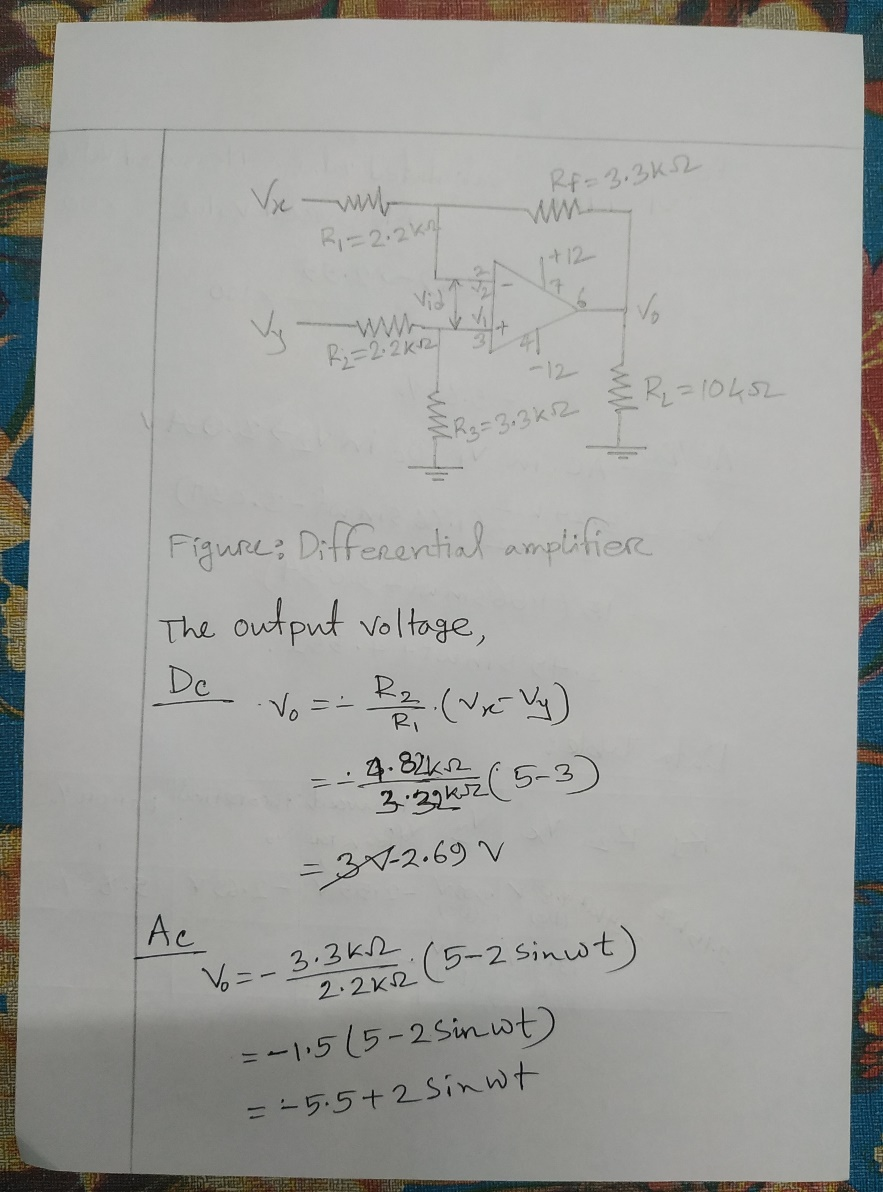 Rf=3.3kΩ
Vx
R1=2.2kΩ
+12
2
V2
-
7
6
Vid
V1
+
3
4
Vo
Vy
R2=2.2kΩ
-12
RL=10kΩ
R3=3.3kΩ
Figure: Differential amplifier
The output voltage,
Dc
Vo = - R2/R1 . (Vx-Vy)
= - 4.82kΩ/3.32kΩ (5-3)
= -2.69 V
Ac
Vo = - 3.3kΩ/2.2kΩ . (5-2 sinωt)
= -1.5 (5-2 Sin ωt)
= -5.5+2 Sin ωt